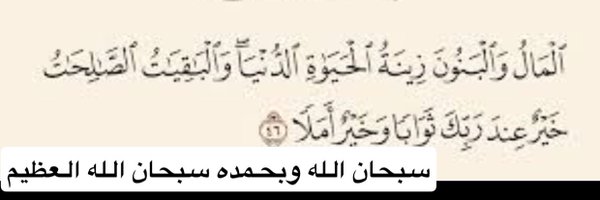 ٱلْمَالُ وَٱلْبَنُونَ زِينَةُ ٱلْحَيَوٰةِ ٱلدُّنْيَا ۖ وَٱلْبَٰقِيَٰتُ ٱلصَّٰلِحَٰتُ
خَيْرٌ عِندَ رَبِّكَ ثَوَابًا وَخَيْرٌ أَمَلًا ٤٦
سبحان الله وبحمده سبحان الله العظيم